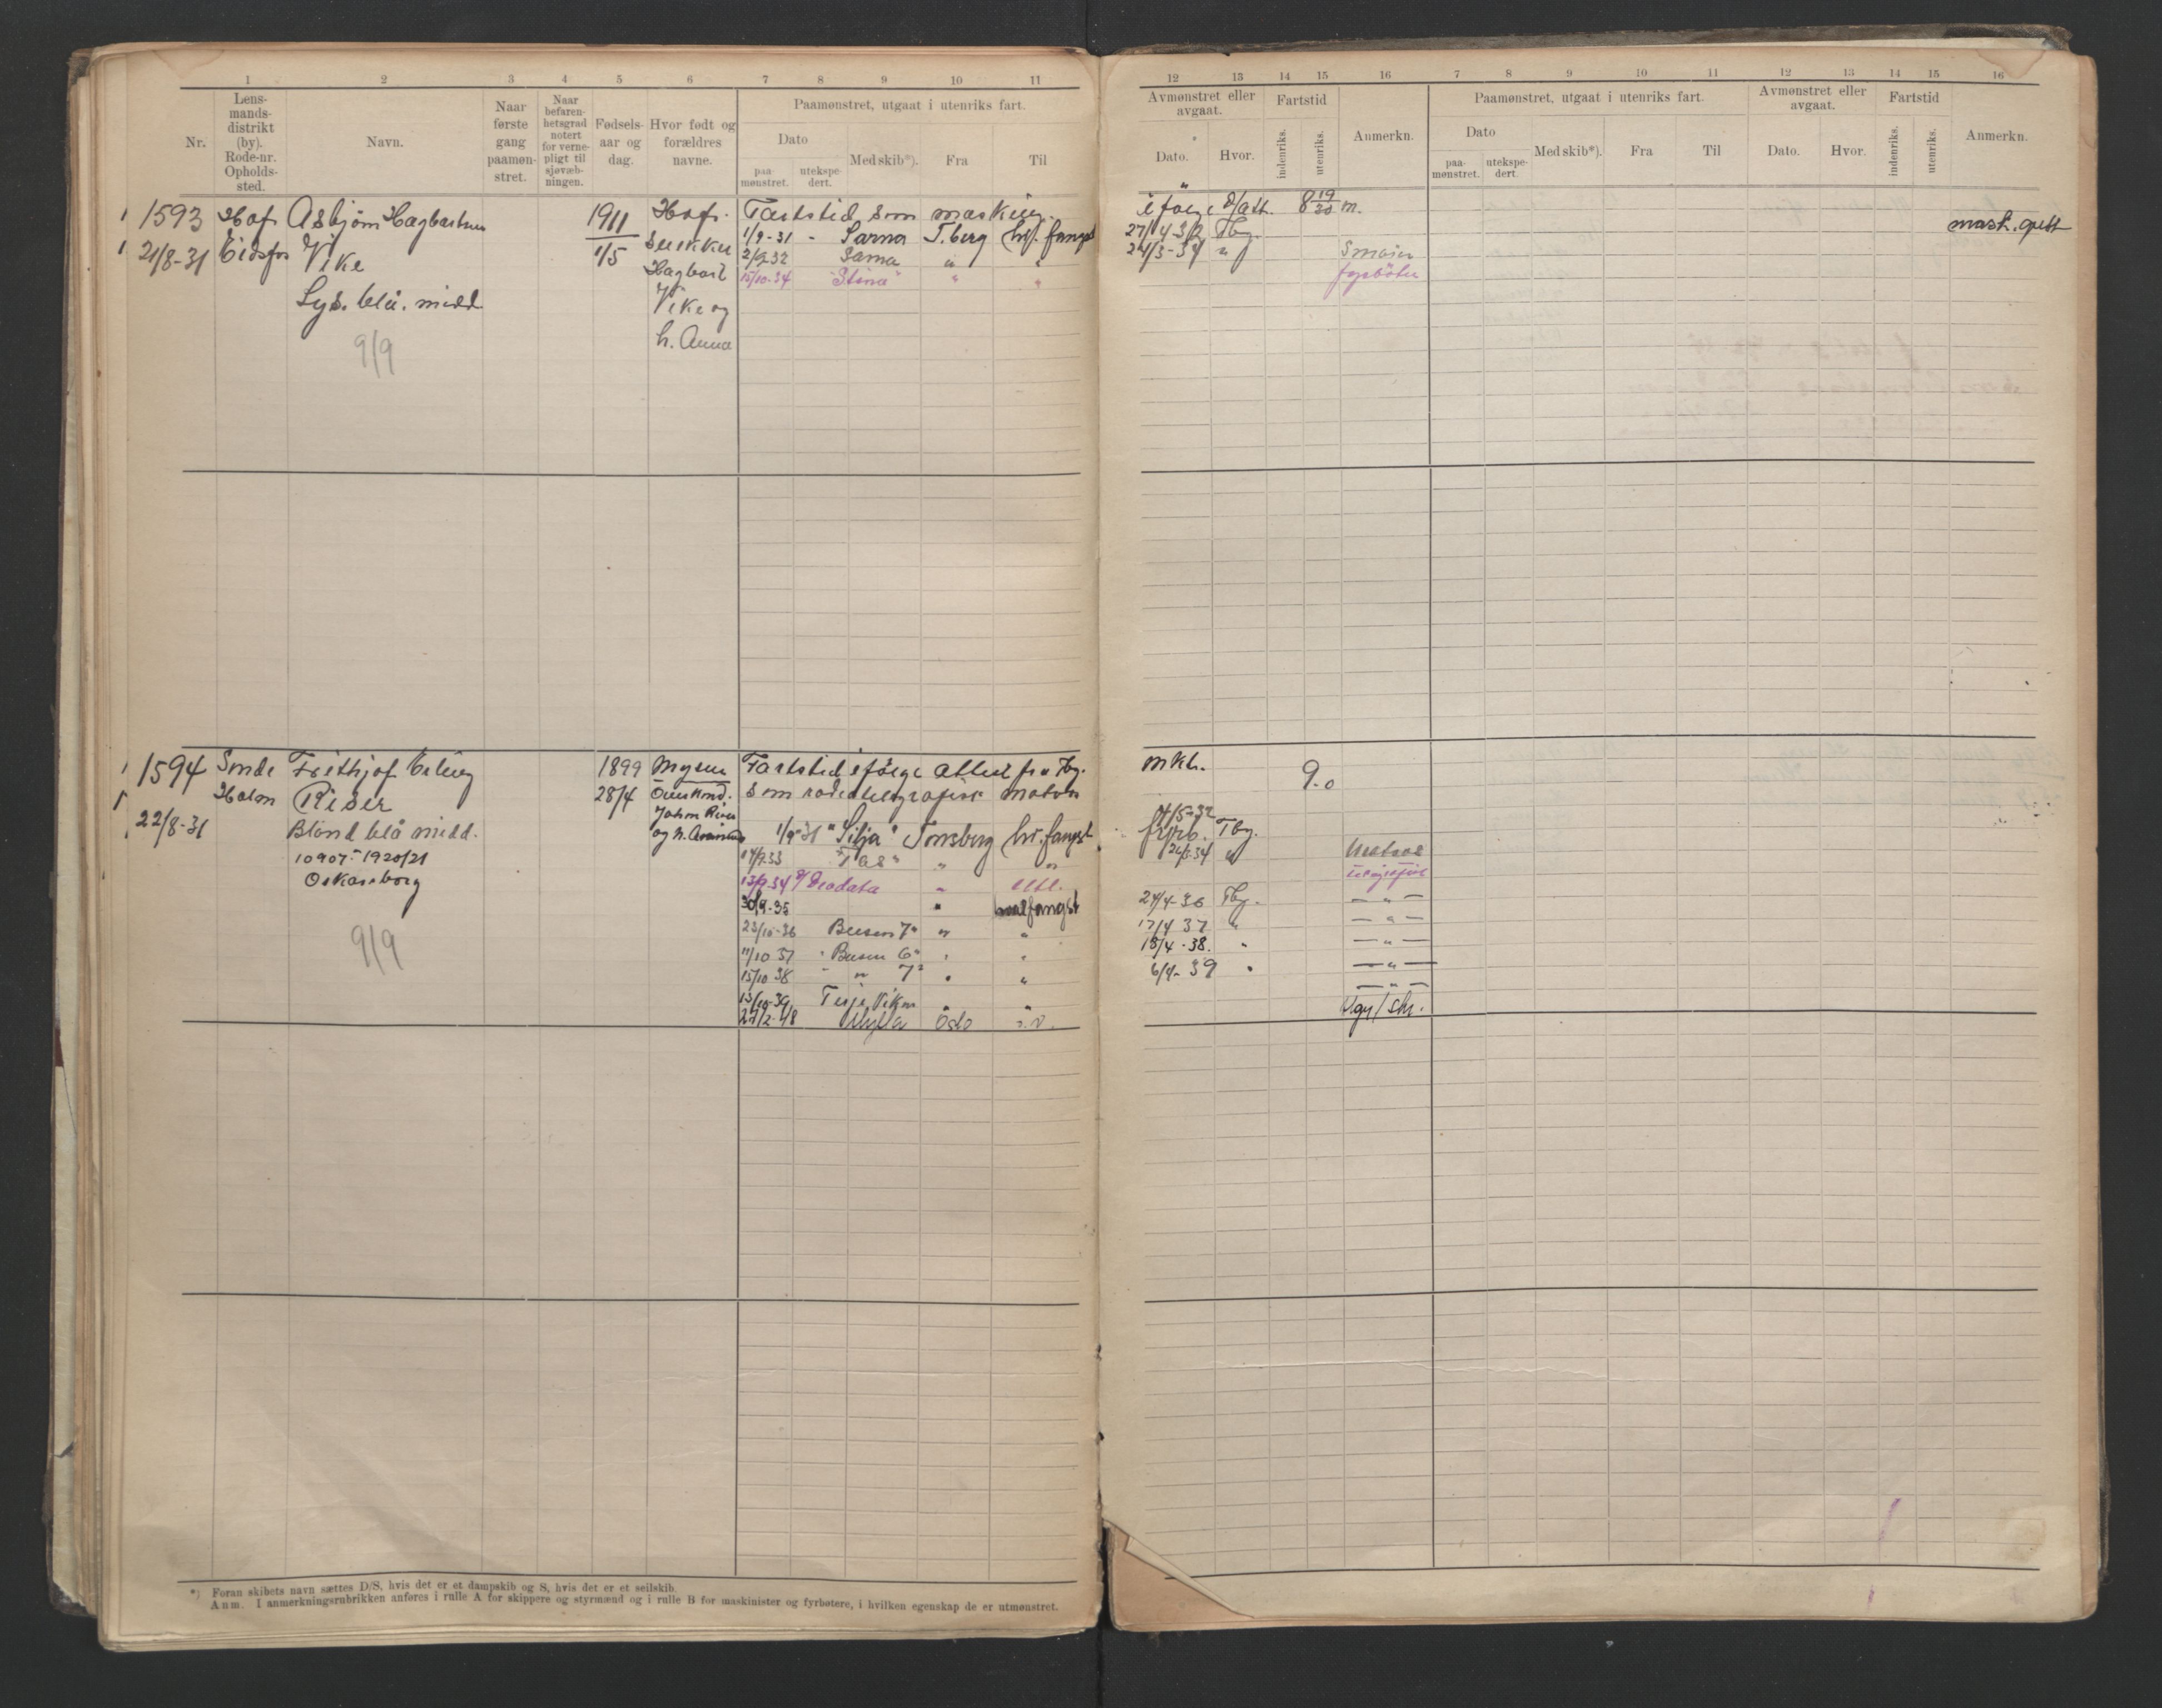 1 2 3 4 5 6 7 8 9 10 11
Nr.
Lens-
mands-
distrikt
(by).
Rode-nr.
Opholds-
sted.
Navn.
Naar
første
gang
paamøn-
stret.
Naar
befaren-
hetsgrad
notert
for verne-
pligt til
sjøvæb-
ningen.
Fødsels-
aar og
dag.
Hvor født og
forældres
navne.
Paamønstret, utgaat i utenriks fart.
Dato
paa-
mønstret.
utekspe-
dert.
Med skib*).
Fra
Til
1593 Hof Asbjørn Hagbartsen 1911 Hof.
21/8-31 Eidsfos Vike 1/5
Lys. blå. midd.
9/9
Hagbart
Vike og
h. Anna
Fartstid som
1/9-31 - Sarna T.berg hv. fangst
2/9-32 Sarna " "
15/10-34 "Stina" " "
1594 Sande Frithjof Erling 1899 Mysen
Holm Riser 28/4
22/8-31 Blond blå midd.
10907-1920/21
Oskarsborg
9/9
Johan Riser
Fartstid ifølge attest fra Tbg.
som radiotelegrafist
1/9-31 "Silja" Tønsberg hv. fangst
13/9-34 " utl.
30/9-35 " hvalfangst
23/10-36 Busen 7" " "
11/10 37 " Busen 6" " "
15/10 38 " " 7" " "
13/10-39 Terje Viken " "
27/2-48 Oslo
*) Foran skibets navn sættes D/S, hvis det er et dampskib og S, hvis det er et seilskib.
Anm. I anmerkningsrubrikken anføres i rulle A for skippere og styrmænd og i rulle B for maskinister og fyrbøtere, i hvilken egenskap de er utmønstret.
12 13 14 15 16 7 8 9 10 11 12 13 14 15 16
Avmønstret eller
avgaat.
Dato.
Hvor.
Fartstid
indenriks.
utenriks.
Anmerkn.
Paamønstret, utgaat i utenriks fart.
Dato
paa-
mønstret.
utekspe-
dert.
Med skib*).
Fra
Til
Avmønstret eller
avgaat.
Dato.
Hvor.
Fartstid
indenriks.
utenriks.
Anmerkn.
ifølge att. 8 19/30 m.
27/4 32 Tbg.
24/3-34 " Smører
fyrbøter
9.0
4/5-32
Tbg.
26/3-34 " Matros
telegrafist
24/4-36 Tbg. — " —
17/4 37 " — " —
18/4-38. " — " —
6/4-39 " — " —
— " —